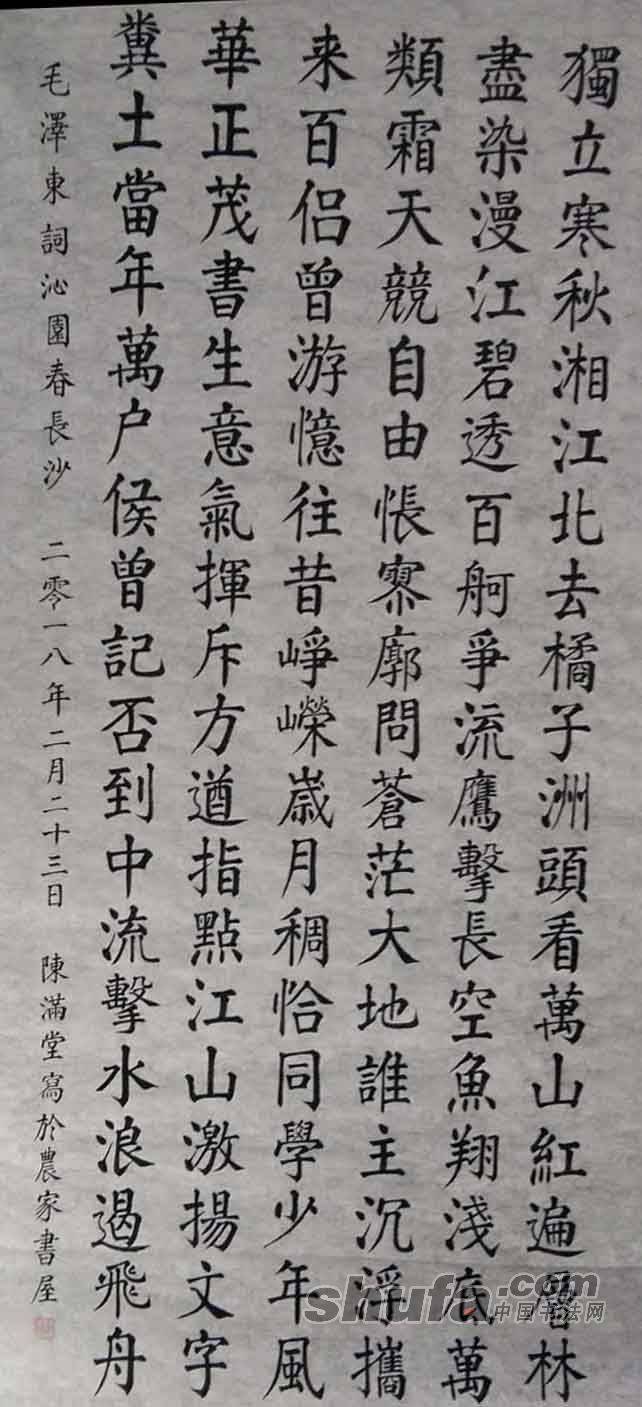 獨立寒秋湘江北去橘子洲頭看萬山紅遍層林
盡染漫江碧透百舸爭流鷹擊長空魚翔淺底萬
類霜天競自由悵寥廓問蒼茫大地誰主沉浮攜
来百侣曾游憶往昔崢嶸歲月稠恰同學少年風
華正茂書生意氣揮斥方遒指點江山激揚文字
糞土當年萬户侯曾記否到中流擊水浪遏飛舟
毛澤東詞沁園春長沙 二零一八年二月二十三日 陳滿堂寫於農家書屋
shufa.com
中国书法网